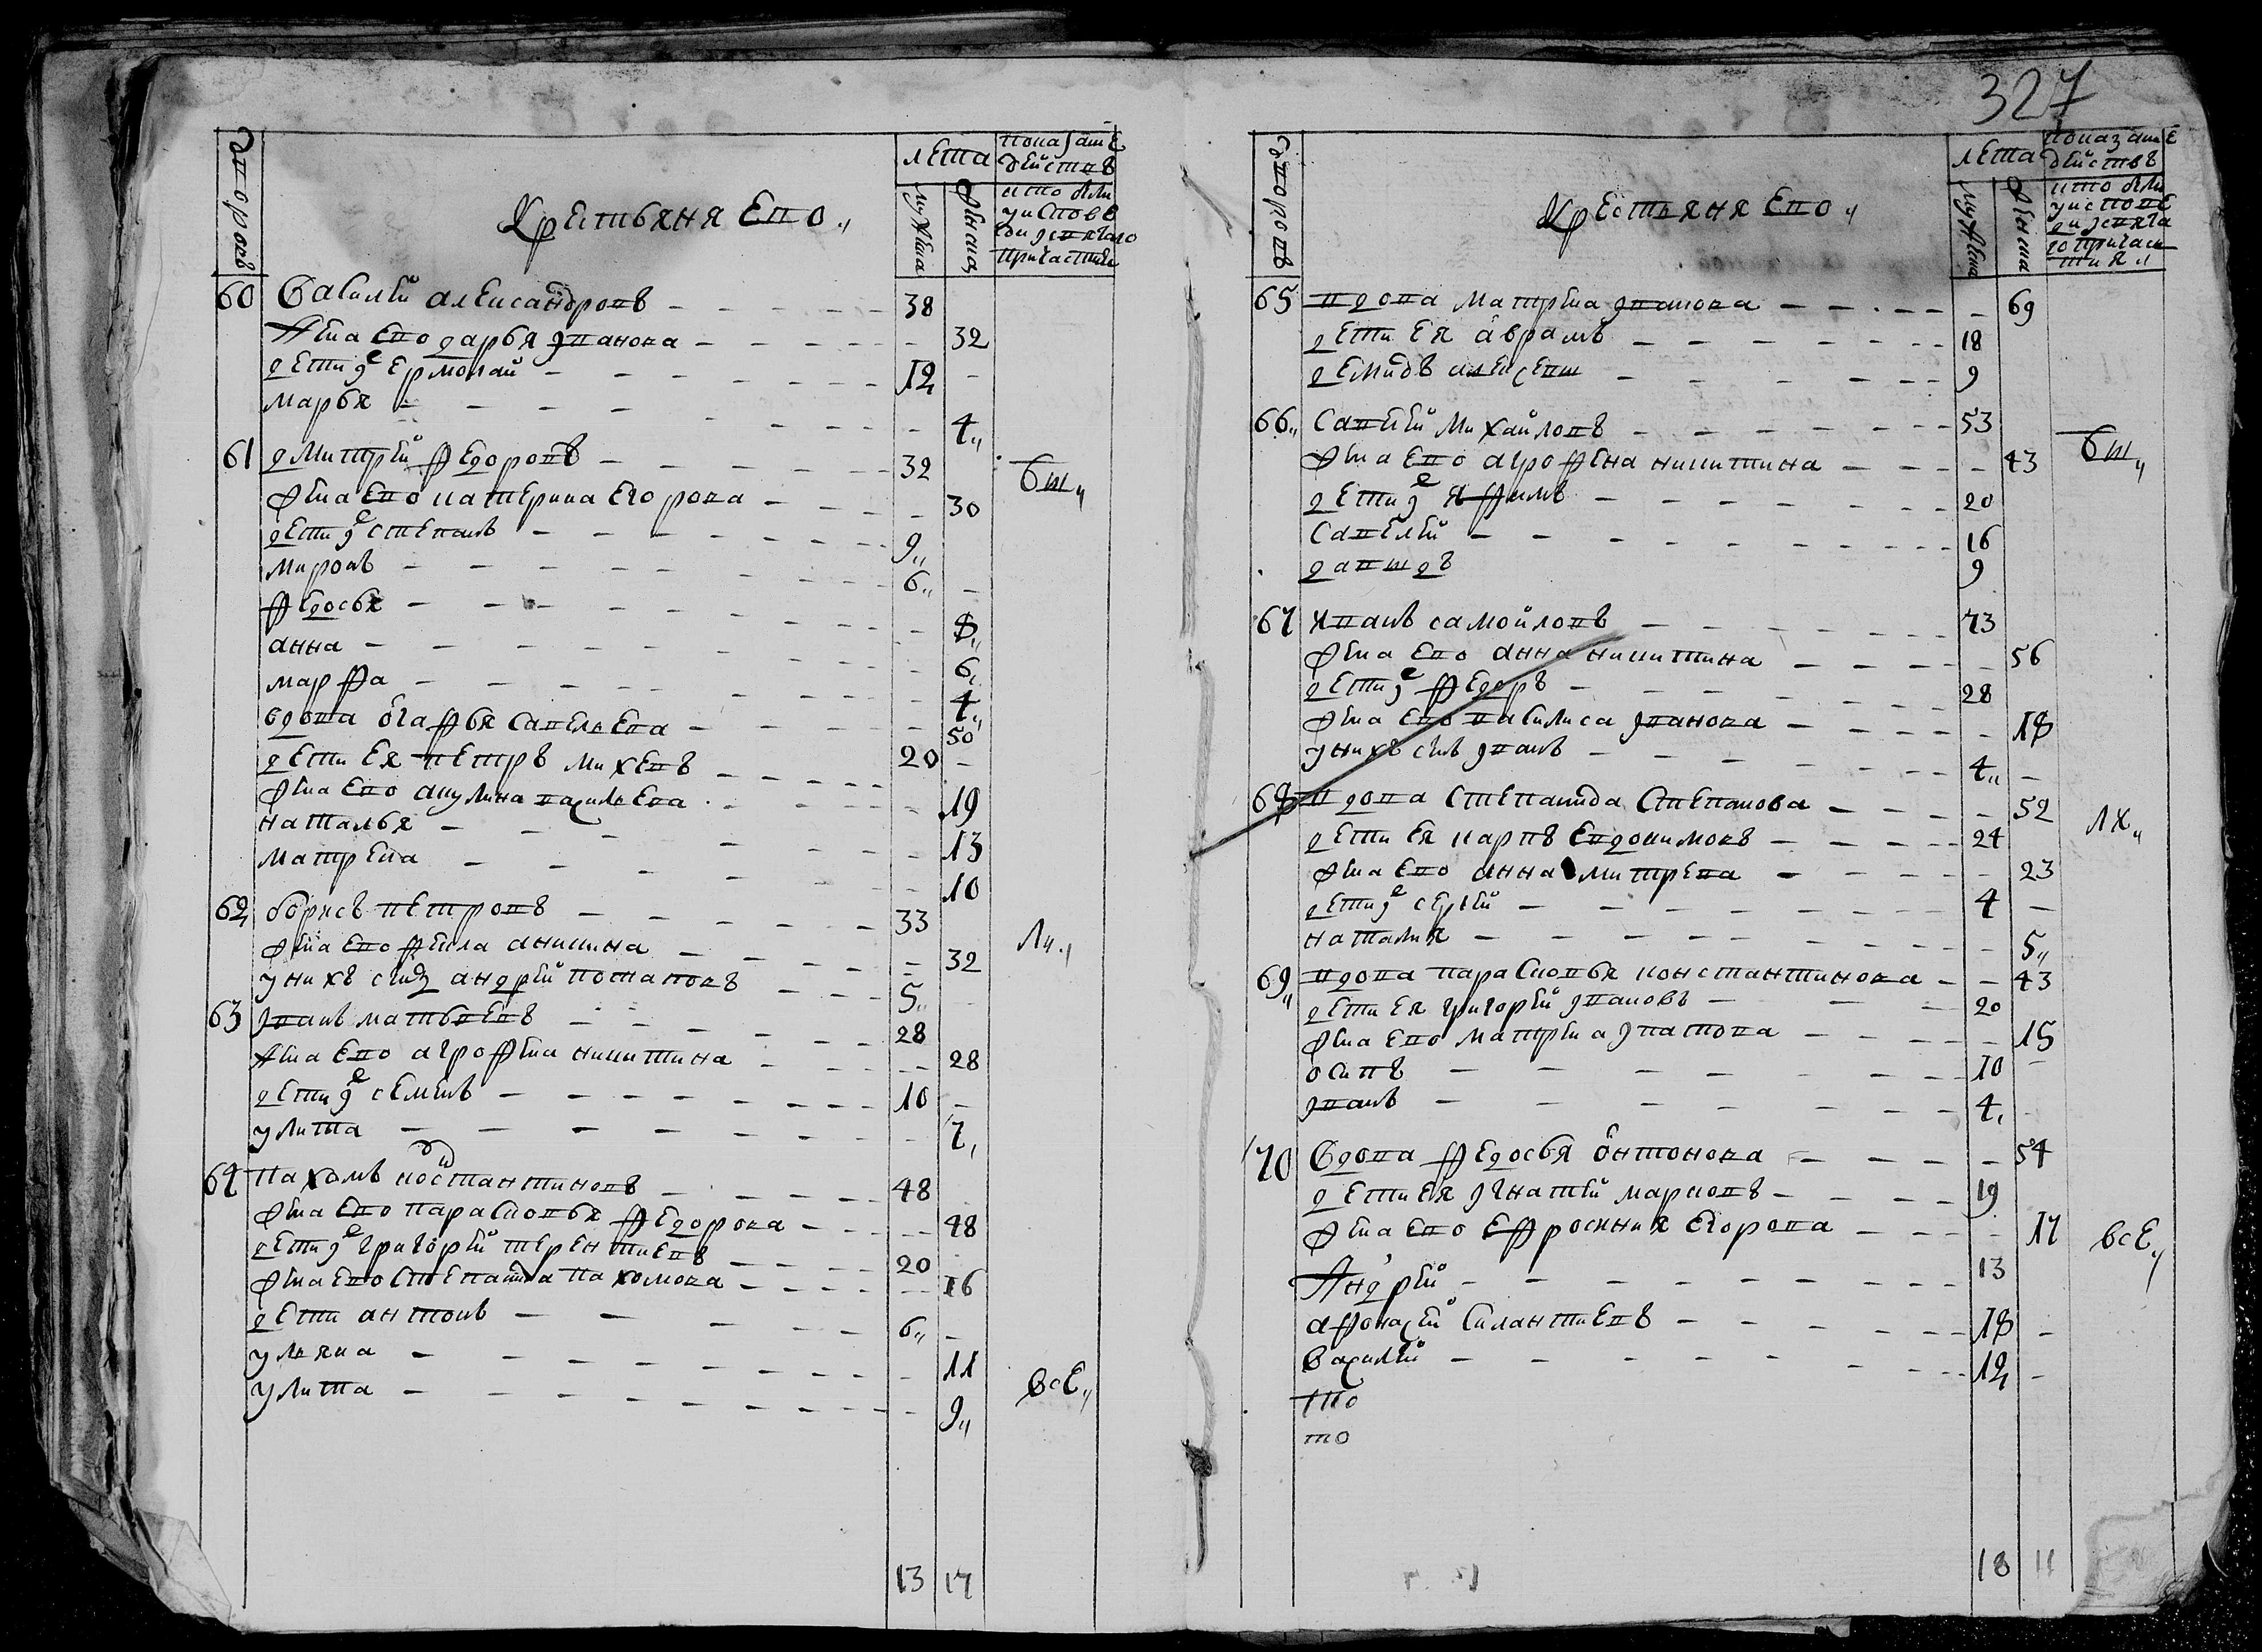 327
дворовъ
Крестьяня Ево
лета
мужеска
женска
показание
действъ
кто были
у исповеди
и святаго
причастия
60 Василей александровъ 38
Жена Ево дарья Иванова 32
дети Ермолай 12
марья 4
61 дмитрей Федоровъ 32
жена Ево катерина Егорова 30
дети степанъ 9
миронъ 6
Федосья 8
анна 6
марфа 4
вдова агафья савельева 50
дети Ея петръ михеевъ 20
жена Ево акулина васильева 19
наталья 13
матрена 10
62 борисъ петровъ 33
жена Ево фекла аникина 32
у нихъ андрей потаповъ 5
63 Иванъ матвеевъ 28
жена Ево агрофена никитина 28
дети семенъ 10
улита 7
64 пахомъ костантиновъ 48
жена Ево парасковья Федорова 48
дети григорей терентиевъ 20
жена Ево степанида пахомова 16
дети антонъ 6
ульяна 11
улита 9
бщ
лч
все
13 17
дворовъ
Крестьяня Ево
лета
мужеска
женска
показание
действъ
кто были
у исповеди
и святаго
причастия
65 вдова матрена Иванова 69
дети Ея аврамъ 18
демидъ алексеевы 9
66 савелей михайловъ 53
жена Ево агрофена никитина 43
дети яфимъ 20
савелей 16
давыдъ 9
67 Иванъ самойловъ 73
жена Ево анна никитина 56
дети Федоръ 28
жена Ево василиса Иванова 18
у нихъ сынъ Иванъ 4
68 вдова степанида степанова 52
дети Ея карпъ Евдокимовъ 24
жена Ево анна митрева 23
дети сергей 4
наталия 5
69 вдова парасковья константинова 43
дети Ея григорей Ивановъ 20
жена Ево матрена Ипатова 15
осипъ 10
Иванъ 4
70 вдова Федосья антонова 54
дети Ея Игнатей марковъ 19
жена Ево Ефросиния Егорова 17
Андрей 13
афонасей силантиевъ 18
василей 12
то
то
бщ
лх
все
18 11